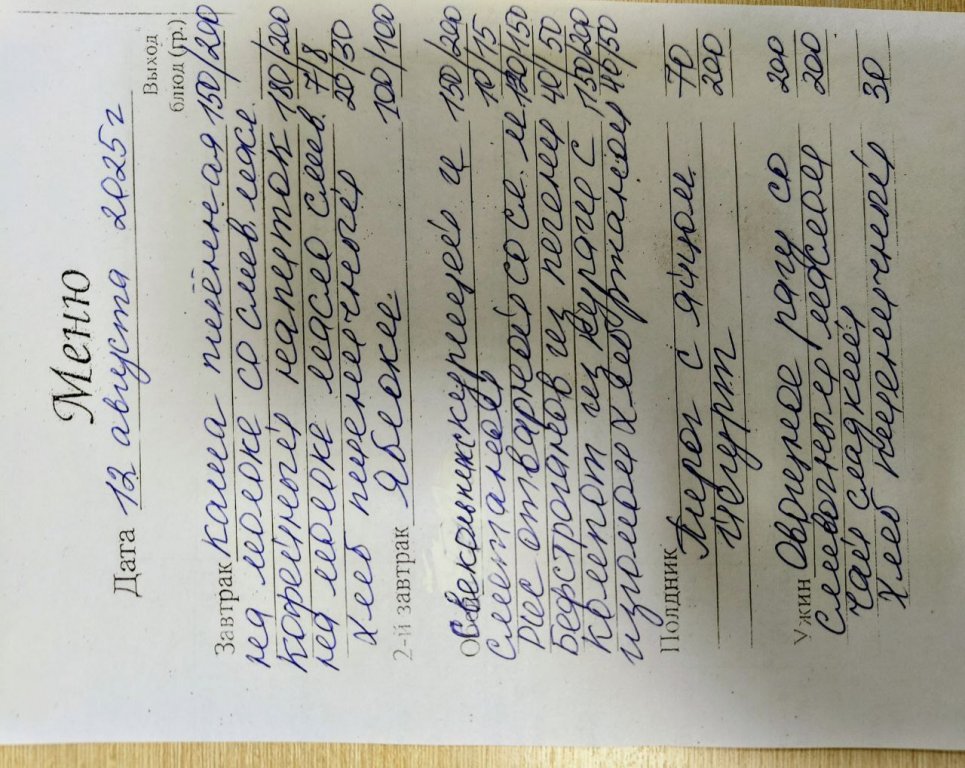 Меню
Дата 12 августа 2025г
Выход
блюд (гр.)
Завтрак каша пшённая 150/200
на молоке со слив. маже
Кофейный напиток 180/200
на молоке масло слив. 7/8
Хлеб пшеничный 20/30
2-й завтрак Яблоки 100/100
Обед Свекольник с курицей и 150/200
сметаной 10/15
Рис отварной со сл. м. 120/150
Бефстроганов из печени 40/50
Компот из кураги с 150/200
изюмом Хлеб ржаной 40/50
Полдник Пирог с яйцом 70
йогурт 200
Ужин Овощное рагу со 200
сливочным маслом 200
чай сладкий
Хлеб пшеничный 30